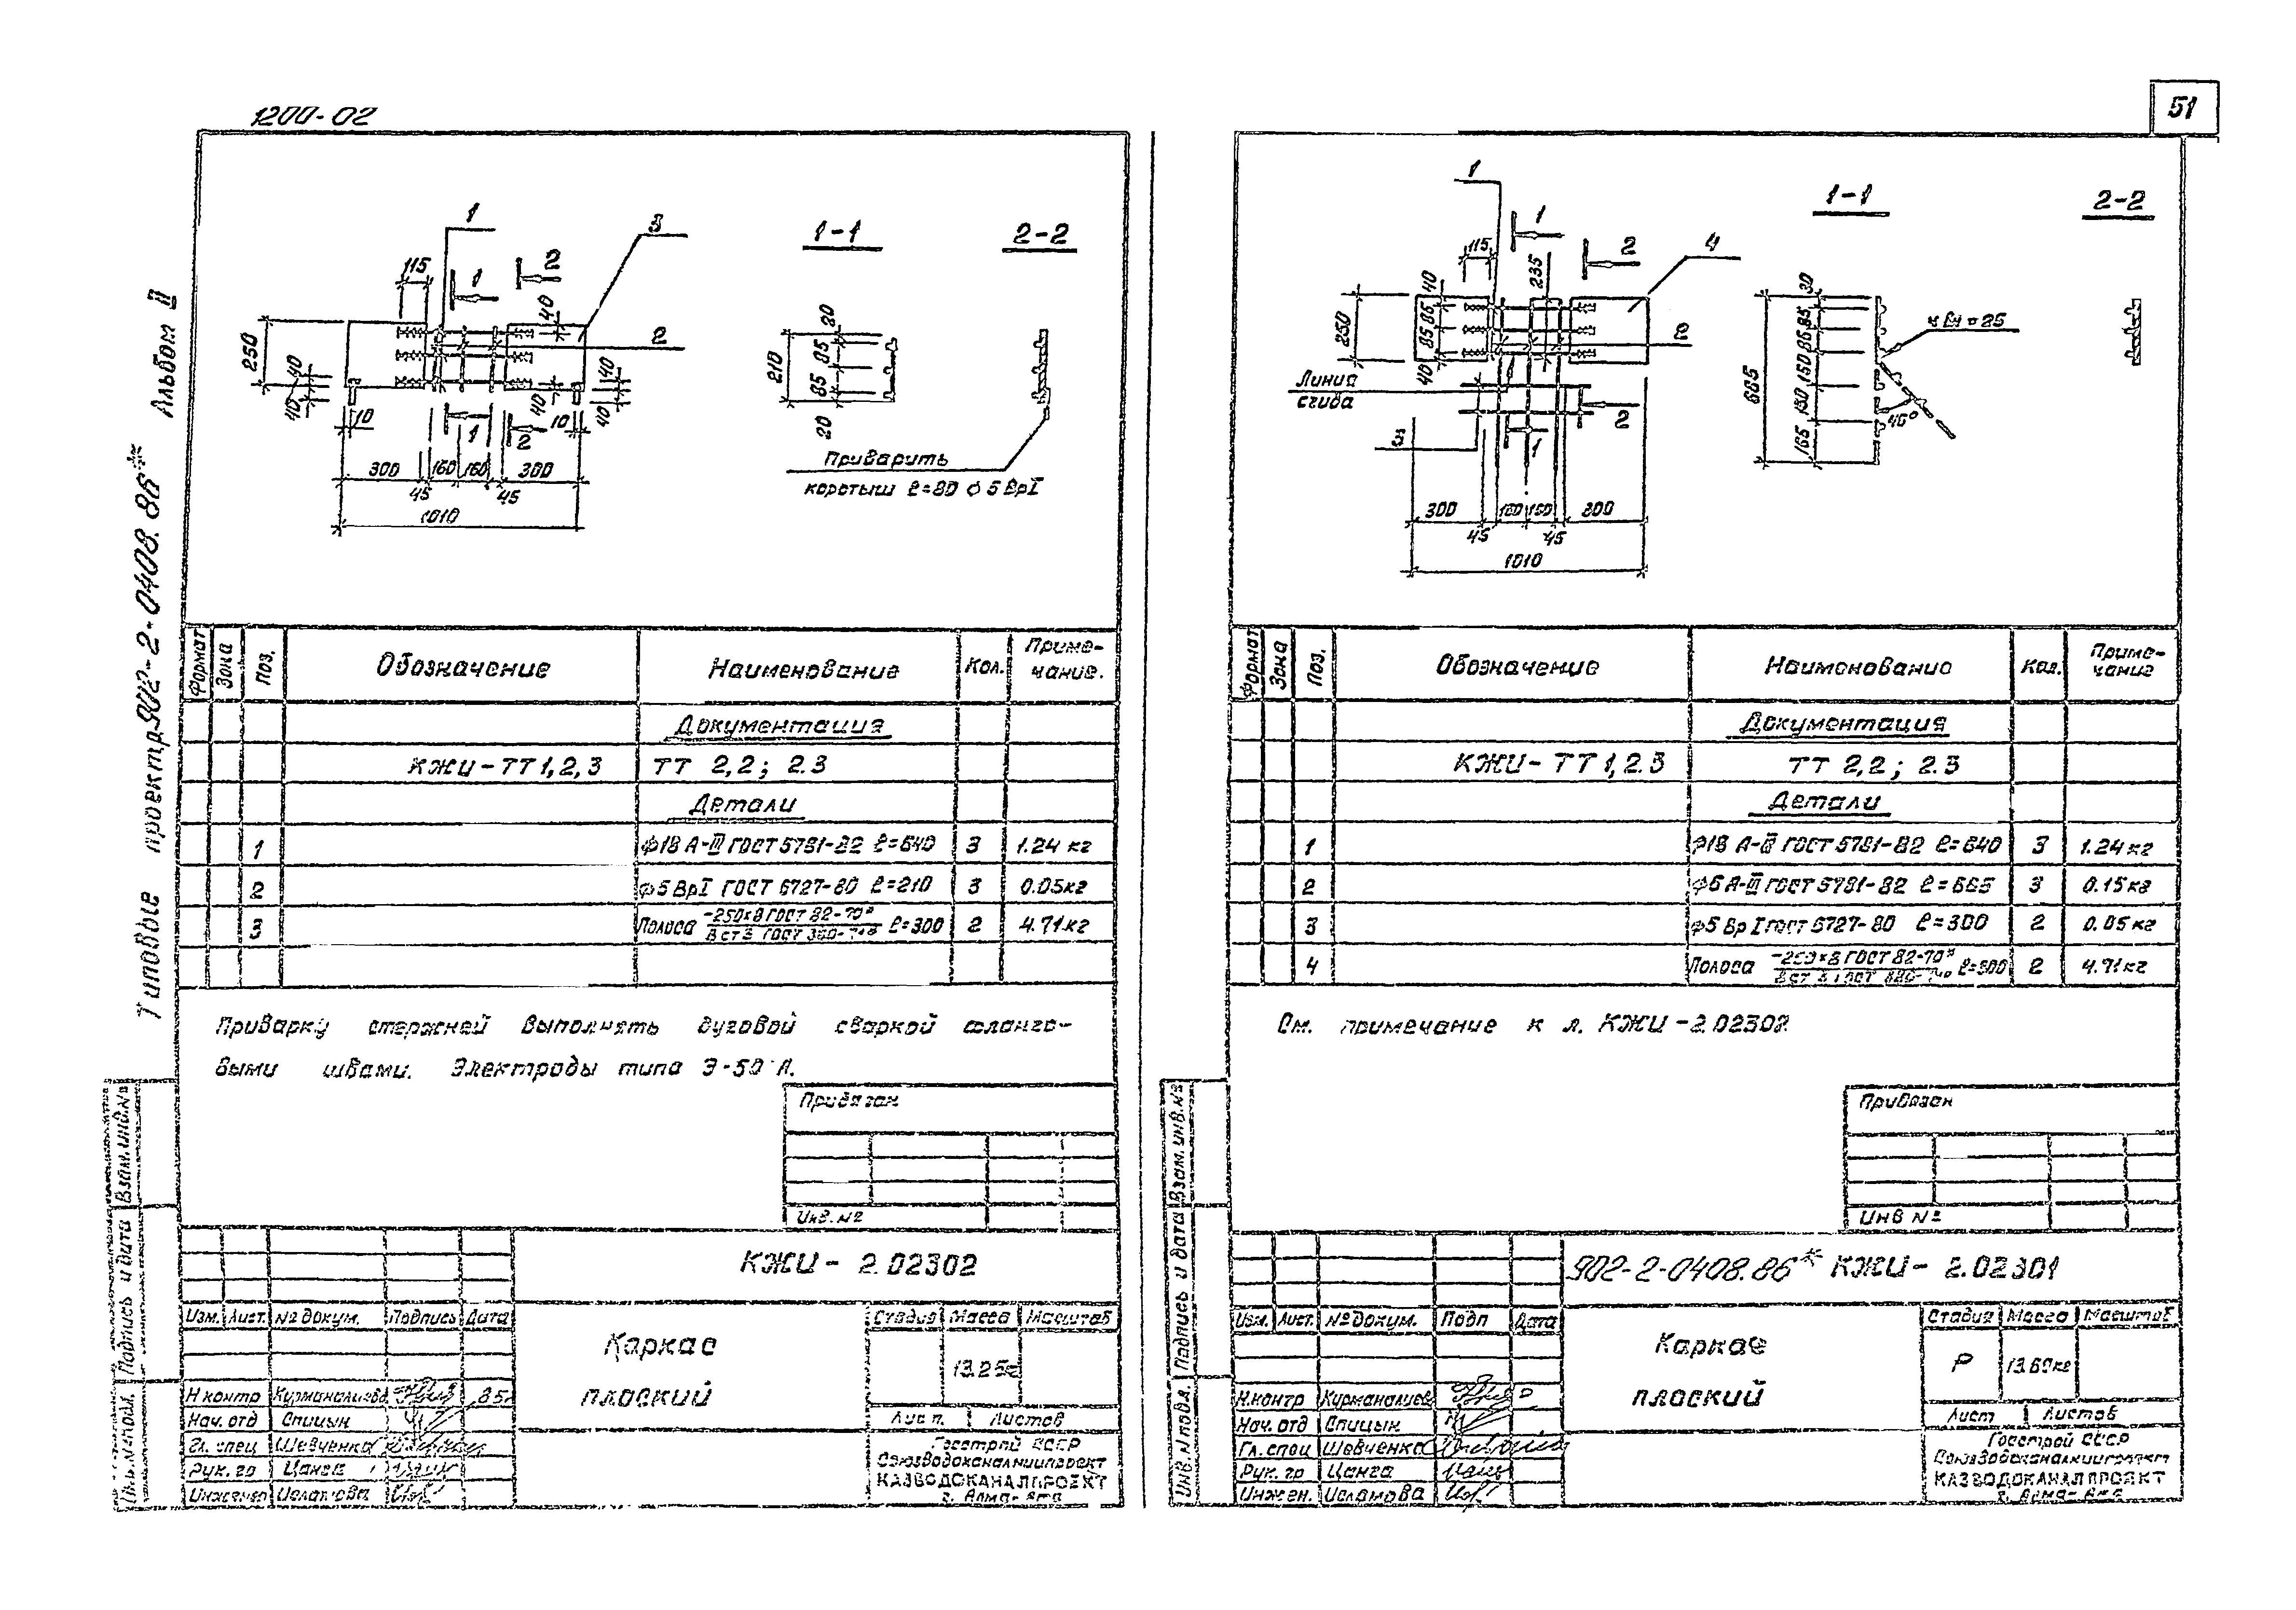 1200-02
51
Типовые проекты 902-2-0408.86* Альбом II
1
3
1
2
115
40
250
40
40
2
40
40
40
10
1
2
10
300 160 160 300
45 45
1010
1-1
2-2
210
20
85
85
20
Приварить
коротыш ℓ=80 ф 5 ВрI
Формат Зона Поз. Обозначение Наименование Кол. Приме-
чание.
Документация
КЖИ-ТТ1,2,3 ТТ 2,2; 2.3
Детали
1 ф18 А-III ГОСТ 5781-82 ℓ=640 3 1.24 кг
2 ф5 ВрI ГОСТ 6727-80 ℓ=210 3 0.05кг
3 Полоса -250×8 ГОСТ 82-70* ℓ=300 2 4.71кг
В ст3 ГОСТ
Приварку стержней выполнять дуговой сваркой фланго-
выми швами. Электроды типа Э-50 А.
Привязан
Инв. №
КЖИ- 2.02302
Изм. Лист. № докум. Подпись Дата
Каркас
плоский
Стадия Масса Масштаб
13.25кг
Лист. Листов
Н контр Курманалиева 85г
Нач. отд Спицын
Гл. спец Шевченко
Рук. гр Цанга
Инженер Исламова
Госстрой СССР
Союзводоканалниипроект
КАЗВОДОКАНАЛПРОЕКТ
г. Алма-Ата
Инв.№подл. Подпись и дата Взам.инв.№
1
1
2
4
115
235
40
85 85
40
250
2
Линия
сгиба
2
3
1
300 160 160 300
45 45
1010
1-1
2-2
665
30
85 85
150
150
165
45°
Формат Зона Поз. Обозначение Наименование Кол. Приме-
чание
Документация
КЖИ- ТТ 1,2.3 ТТ 2,2; 2.3
Детали
1 ф18 А-III ГОСТ 5781-82 ℓ=640 3 1.24кг
2 ф6 А-III ГОСТ 5781-82 ℓ=665 3 0.15кг
3 ф5 Вр I ГОСТ 6727-80 ℓ=300 2 0.05кг
4 Полоса -250×8 ГОСТ 82-70* ℓ=300 2 4.71кг
См. примечание к л. КЖИ-2.02302
Привязан
Инв №
902-2-0408.86* КЖИ- 2.02301
Изм. Лист. № докум. Подп Дата
Каркас
плоский
Стадия Масса Масштаб
Р
Лист Листов
Н.контр Курманалиева
Нач. отд Спицын
Гл. спец Шевченко
Рук. гр Цанга
Инжен. Исламова
Госстрой СССР
Союзводоканалниипроект
КАЗВОДОКАНАЛПРОЕКТ
г. Алма-Ата
Инв.№подл. Подпись и дата Взам.инв.№